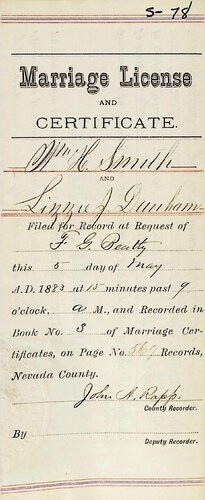 S-78
Marriage License
AND
CERTIFICATE.
Wm H. Smith
AND
Lizzie J Dunham
Filed for Record at Request of
F. G. Beatty
this 5 day of May
A.D. 1883 at 15 minutes past 9
o'clock, a M., and Recorded in
Book No. 3 of Marriage Cer-
tificates, on Page No. 567 Records,
Nevada County.
John A. Rapp.
County Recorder.
By
Deputy Recorder.